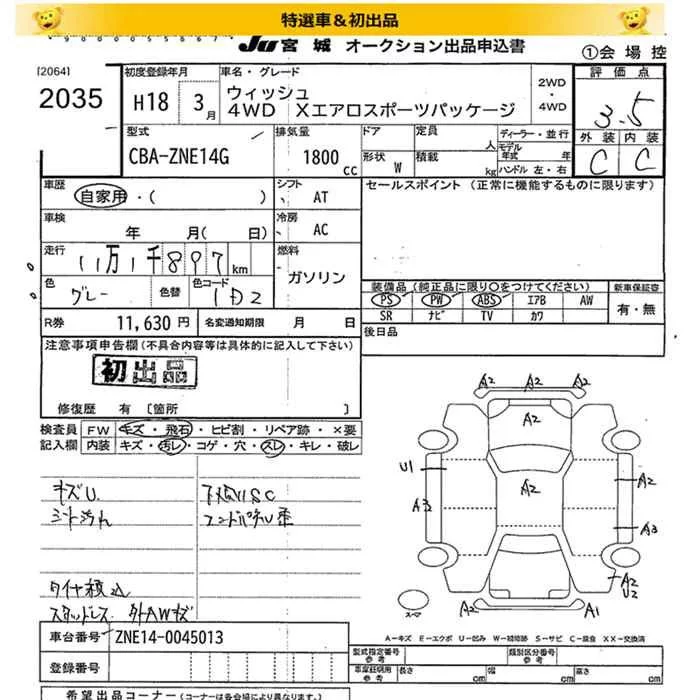 特選車＆初出品
JU宮城 オークション出品申込書
①会場控
[2064]
2035
初度登録年月
H18 3月
車名・グレード
ウィッシュ
4WD Xエアロスポーツパッケージ
2WD
・
4WD
評価点
3.5
外装 内装
C C
型式
CBA-ZNE14G
排気量
1800
cc
ドア
形状 W
定員
人
積載
kg
ディーラー・並行
モデル年式 年
ハンドル 左・右
車歴
自家用・( )
シフト
AT
セールスポイント (正常に機能するものに限ります)
車検
年 月( 日)
冷房
AC
走行
11万1千897km
燃料
ガソリン
色
グレー
色替
色コード
1D2
装備品 (純正品に限り○をつけてください)
新車保証書
PS PW ABS エアB AW
有・無
SR ナビ TV カワ
R券 11,630円
名変通知期限 月 日
後日品
注意事項申告欄(不具合内容等は具体的に記入して下さい)
初出品
修復歴 有 [箇所 ]
検査員
記入欄
FW キズ・飛石・ヒビ割・リペア跡・×要
内装 キズ・汚レ・コゲ・穴・スレ・キレ・破レ
キズU.
下廻りSC
シート汚れ
タイヤ積込
スタッドレス 外AWキズ
A2 A2 A2
A2
U1
A2
A2
A3
A3
A2
2
A2
A1
スーマ
A－キズ E－エクボ U－凹み W－補修跡 S－サビ C－腐食 XX－交換済
車台番号 ZNE14-0045013
登録番号
型式指定番号
参考
類別区分番号
参考
車庫証明用
参考
長さ cm
幅 cm
高さ cm
希望出品コーナー(コーナーは各会場により異なります。)